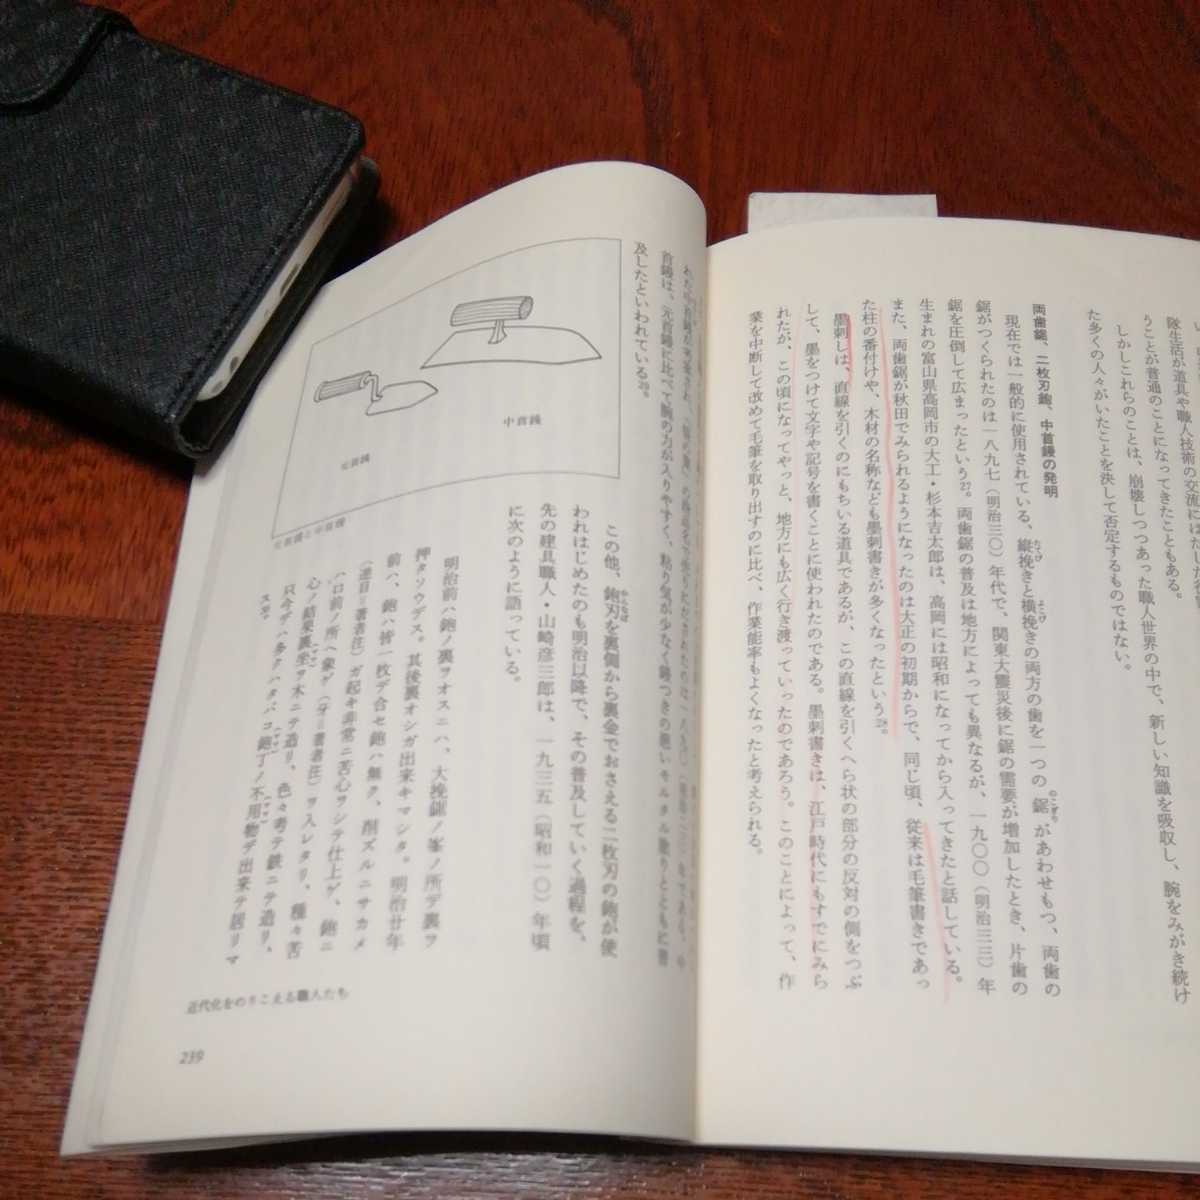 隊生活が道具や職人技術の交流にはたした
うことが普通のことになってきたこともある。
しかしこれらのことは、崩壊しつつあった職人世界の中で、新しい知識を吸収し、腕をみがき続け
た多くの人々がいたことを決して否定するものではない。
両歯鋸、二枚刃鉋、中首鏝の発明
現在では一般的に使用されている、縦挽きと横挽きの両方の歯を一つの鋸があわせもつ、両歯の
鋸がつくられたのは一八九七(明治三〇)年代で、関東大震災後に鋸の需要が増加したとき、片歯の
鋸を圧倒して広まったという27。両歯鋸の普及は地方によっても異なるが、一九〇〇(明治三三)年
生まれの富山県高岡市の大工・杉本吉太郎は、高岡には昭和になってから入ってきたと話している。
また、両歯鋸が秋田でみられるようになったのは大正の初期からで、同じ頃、従来は毛筆書きであっ
た柱の番付けや、木材の名称なども墨刺書きが多くなったという28。
墨刺しは、直線を引くのにもちいる道具であるが、この直線を引くへら状の部分の反対の側をつぶ
して、墨をつけて文字や記号を書くことに使われたのである。墨刺書きは、江戸時代にもすでにみら
れたが、この頃になってやっと、地方にも広く行き渡っていったのであろう。このことによって、作
業を中断して改めて毛筆を取り出すのに比べ、作業能率もよくなったと考えられる。
れた中首鏝が考案され、
首鏝は、元首鏝に比べて腕の力が入りやすく、粘り気が少なく錆つきの悪いモルタル塗りとともに普
及したといわれている29。
中首鏝
元首鏝
元首鏝と中首鏝
この他、鉋刃を裏側から裏金でおさえる二枚刃の鉋が使
われはじめたのも明治以降で、その普及していく過程を、
先の建具職人・山崎彦三郎は、一九三五(昭和一〇)年頃
に次のように語っている。
明治前ハ鉋ノ裏ヲオスニハ、大挽鋸ノ峯ノ所デ裏ヲ
押タソウデス。其後裏オシガ出来キマシタ。明治廿年
前ハ、鉋ハ皆一枚デ合セ鉋ハ無ク、削ズルニサカメ
(逆目=著者注)ガ起キ非常ニ苦心ヲシテ仕上ゲ、鉋ニ
ハロ前ノ所ヘ象ゲ(牙=著者注)ヲ入レタリ、種々苦
心ノ結果裏座ヲ木ニテ造リ、色々考テ鉄ニテ造リ、
只今デハ多クハタバコ鉋丁ノ不用物デ出来テ居リマ
スヲ。
近代化をのりこえる職人たち
239